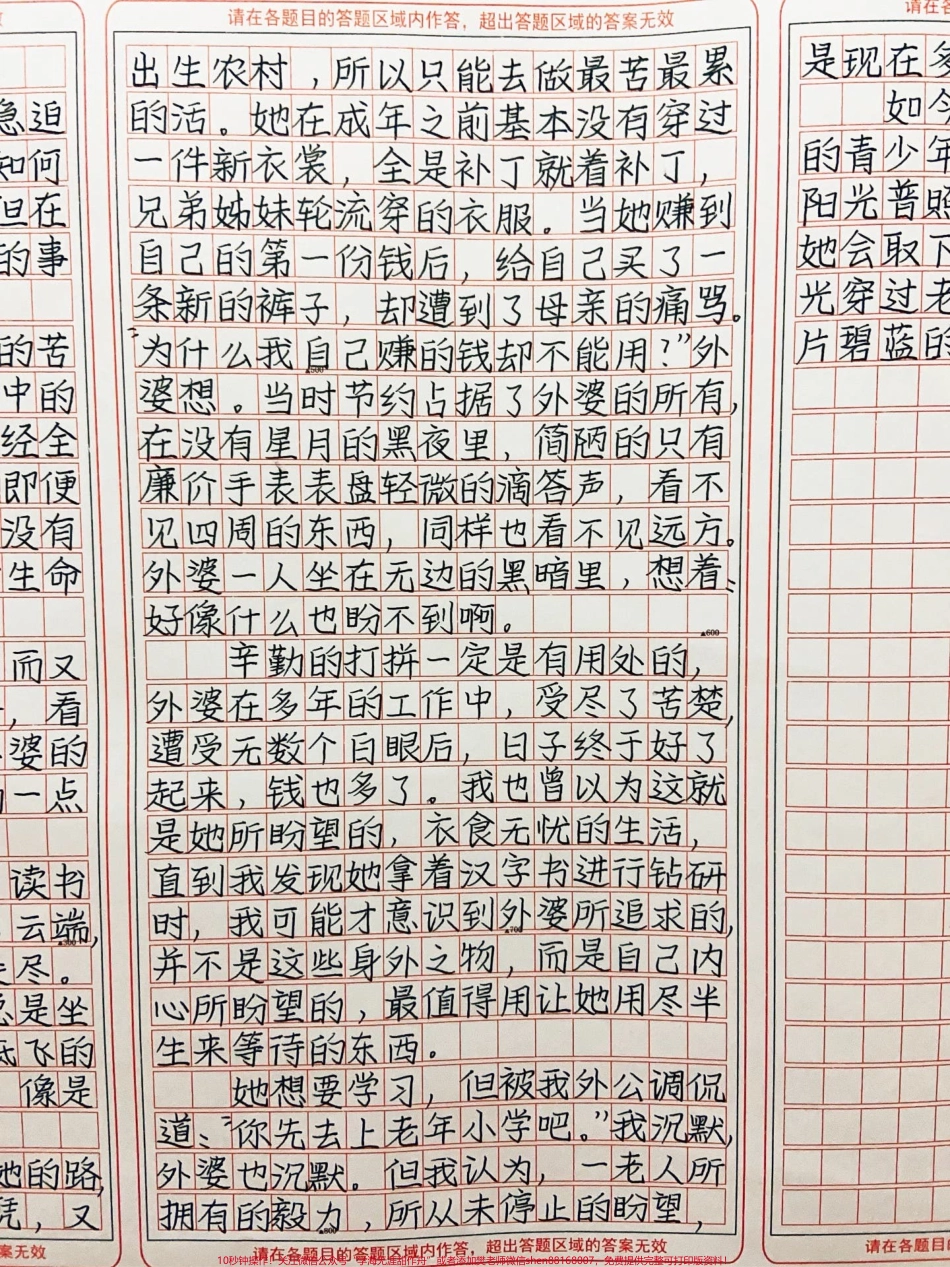 请在各题目的答题区域内作答，超出答题区域的答案无效
急迫
如何
但在
的事
的苦
中的
经全
即便
没有
生命
而又
，看
婆的
一点
读书
云端，
▲300
尽。
是坐
低飞的
像是
她的路，
，又
答案无效
出生农村，所以只能去做最苦最累
的活。她在成年之前基本没有穿过
一件新衣裳，全是补丁就着补丁，
兄弟姊妹轮流穿的衣服。当她赚到
自己的第一份钱后，给自己买了一
条新的裤子，却遭到了母亲的痛骂。
“为什么我自己赚的钱却不能用？”外
▲500
婆想。当时节约占据了外婆的所有，
在没有星月的黑夜里，简陋的只有
廉价手表表盘轻微的滴答声，看不
见四周的东西，同样也看不见远方。
外婆一人坐在无边的黑暗里，想着：
好像什么也盼不到啊。
▲600
辛勤的打拼一定是有用处的，
外婆在多年的工作中，受尽了苦楚，
遭受无数个白眼后，日子终于好了
起来，钱也多了。我也曾以为这就
是她所盼望的，衣食无忧的生活，
直到我发现她拿着汉字书进行钻研
时，我可能才意识到外婆所追求的，
▲700
并不是这些身外之物，而是自己内
心所盼望的，最值得用让她用尽半
生来等待的东西。
她想要学习，但被我外公调侃
道：“你先去上老年小学吧。”我沉默，
外婆也沉默。但我认为，一老人所
拥有的毅力，所从未停止的盼望，
▲800
请在各题目的答题区域内作答，超出答题区域的答案无效
请在各
是现在多
如今
的青少年
阳光普照
她会取下
光穿过老
片碧蓝的
请在各题目的
10秒钟操作：关注微信公众号“学海无涯甜作舟”或者添加樊老师微信shen88168007，免费提供完整可打印版资料！